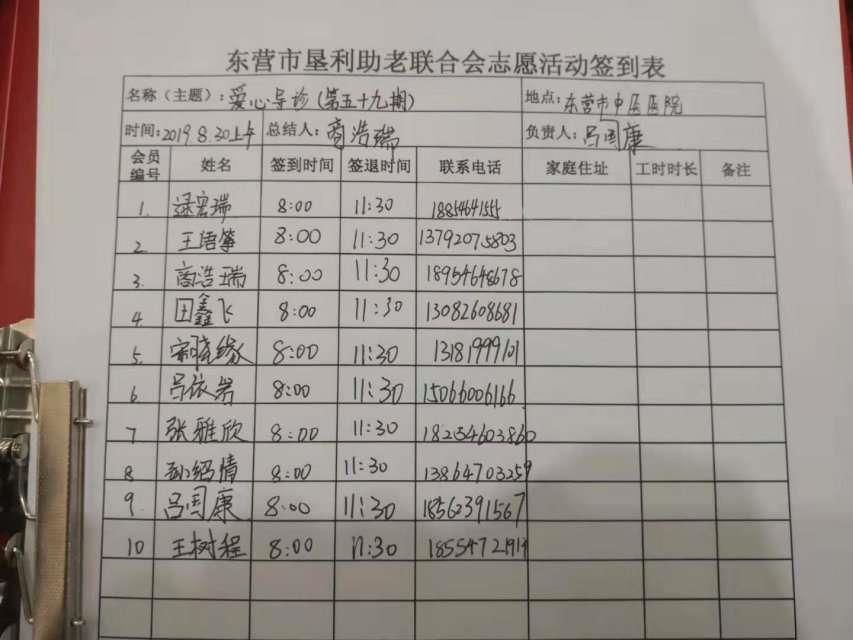 东营市垦利助老联合会志愿活动签到表
名称（主题）：爱心导诊（第五十九期） 地点：东营市中医医院
时间：2019.8.30上午 总结人：商浩瑞 负责人：吕国康
会员编号 姓名 签到时间 签退时间 联系电话 家庭住址 工时时长 备注
1. 逯宏瑞 8:00 11:30
2. 王语 8:00 11:30 13792075803
3. 商浩瑞 8:00 11:30 18954648678
4. 田鑫飞 8:00 11:30 13082608681
5. 宗晓缘 8:00 11:30 13181999101
6 吕依岩 8:00 11:30 15066006166
7 张雅欣 8:00 11:30 18254603860
8 孙绍情 8:00 11:30 13864703259
9. 吕国康 8:00 11:30 18562391567
10 王树程 8:00 11:30 18554721914